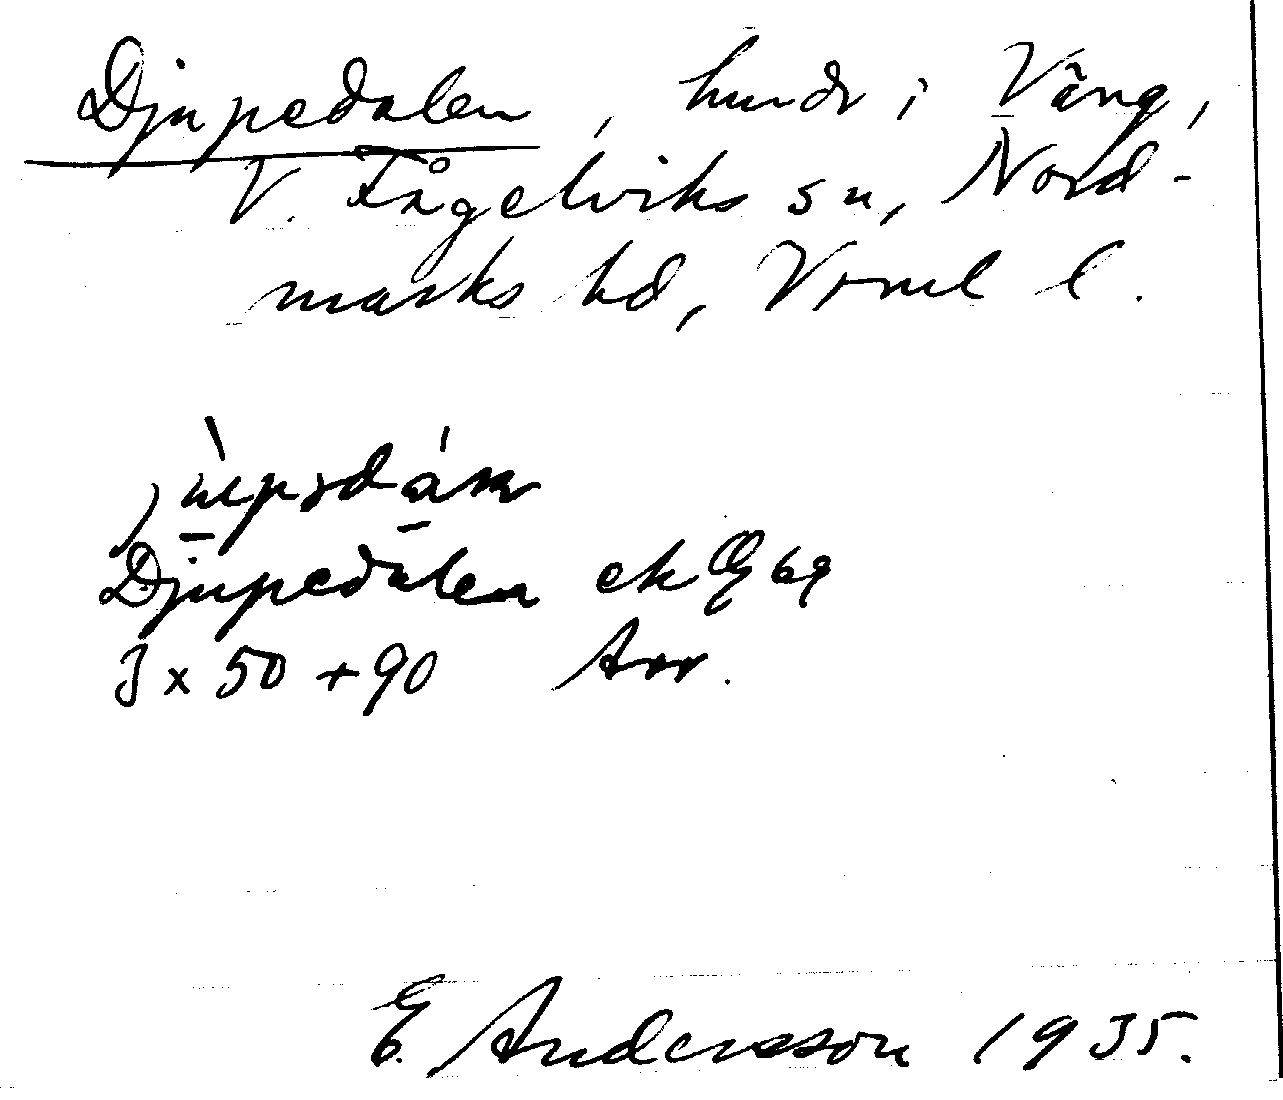 Djupedalen, hundr i Väng,
V. Fågelviks sn, Nord-
marks hd, Vrml l.
Djupedalen ek Œ 69
3 x 50 + 90 Arr.
E. Andersson 1935.